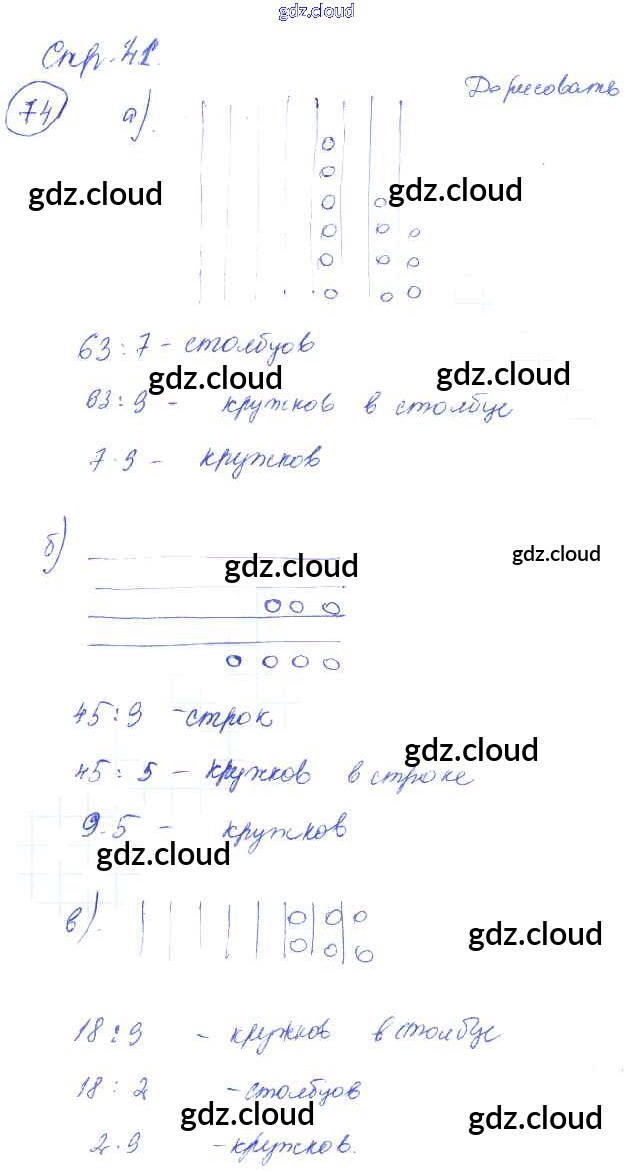 gdz.cloud
Стр. 41.
Дорисовать
74
а).
gdz.cloud
gdz.cloud
63 : 7 - столбцов
gdz.cloud
gdz.cloud
63 : 9 - кружков в столбце
7 · 9 - кружков
б)
gdz.cloud
gdz.cloud
45 : 9 - строк
gdz.cloud
45 : 5 - кружков в строке
9 · 5 - кружков
gdz.cloud
в).
gdz.cloud
18 : 9 - кружков в столбце
18 : 2 - столбцов
gdz.cloud
gdz.cloud
2 · 9 - кружков.